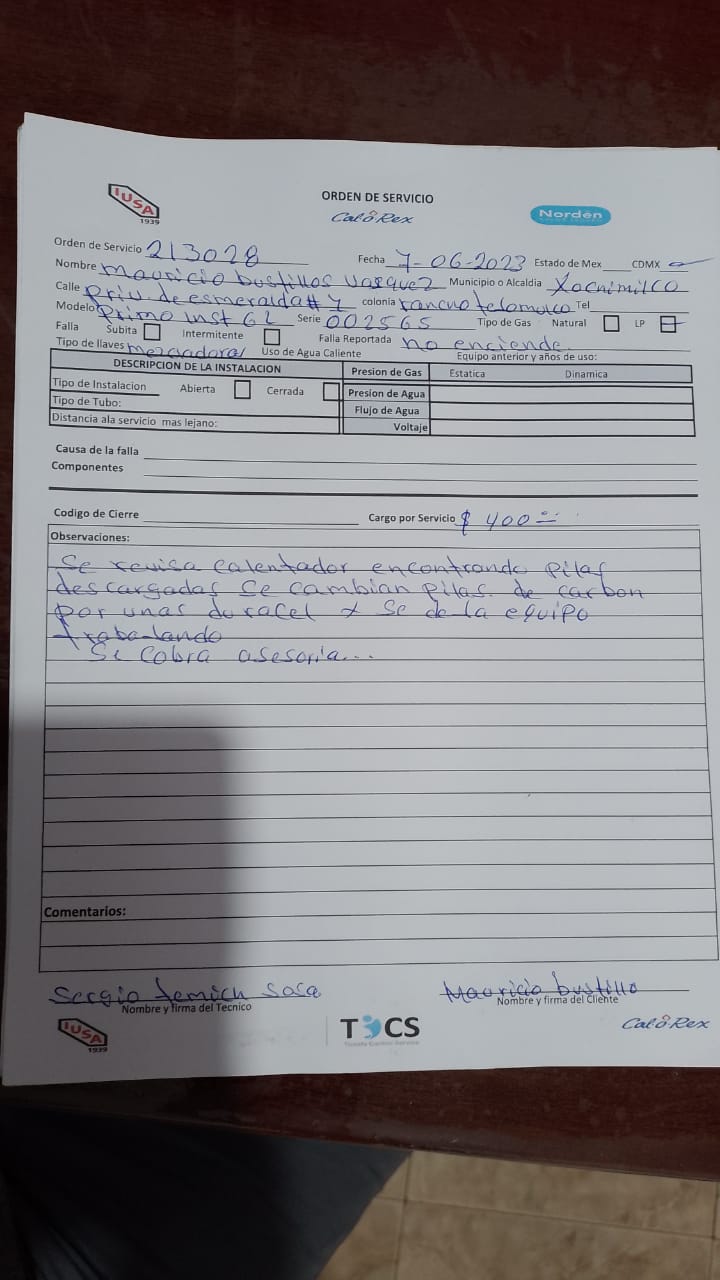 IUSA
1939
ORDEN DE SERVICIO
CalŏRex
Nordën
Orden de Servicio 213028
Fecha 7-06-2023 Estado de Mex CDMX
Nombre Mauricio bustillos vasquez Municipio o Alcaldia Xochimilco
Calle Priv. de esmeralda # 7 colonia rancho tejomulco Tel
Modelo Primo inst 6L Serie 002565 Tipo de Gas Natural LP
Falla Subita Intermitente Falla Reportada no enciende.
Tipo de llaves mezcladora Uso de Agua Caliente Equipo anterior y años de uso:
DESCRIPCION DE LA INSTALACION Presion de Gas Estatica Dinamica
Tipo de Instalacion Abierta Cerrada Presion de Agua
Tipo de Tubo: Flujo de Agua
Distancia ala servicio mas lejano: Voltaje
Causa de la falla
Componentes
Codigo de Cierre Cargo por Servicio $ 400
Observaciones:
Se revisa calentador encontrando pilas
descargadas se cambian pilas de carbon
por unas duracel y se deja equipo
trabajando
Se cobra asesoria...
Comentarios:
Sergio Sosa Mauricio bustillo
Nombre y firma del Tecnico Nombre y firma del Cliente
IUSA
1939
TCS
CalŏRex